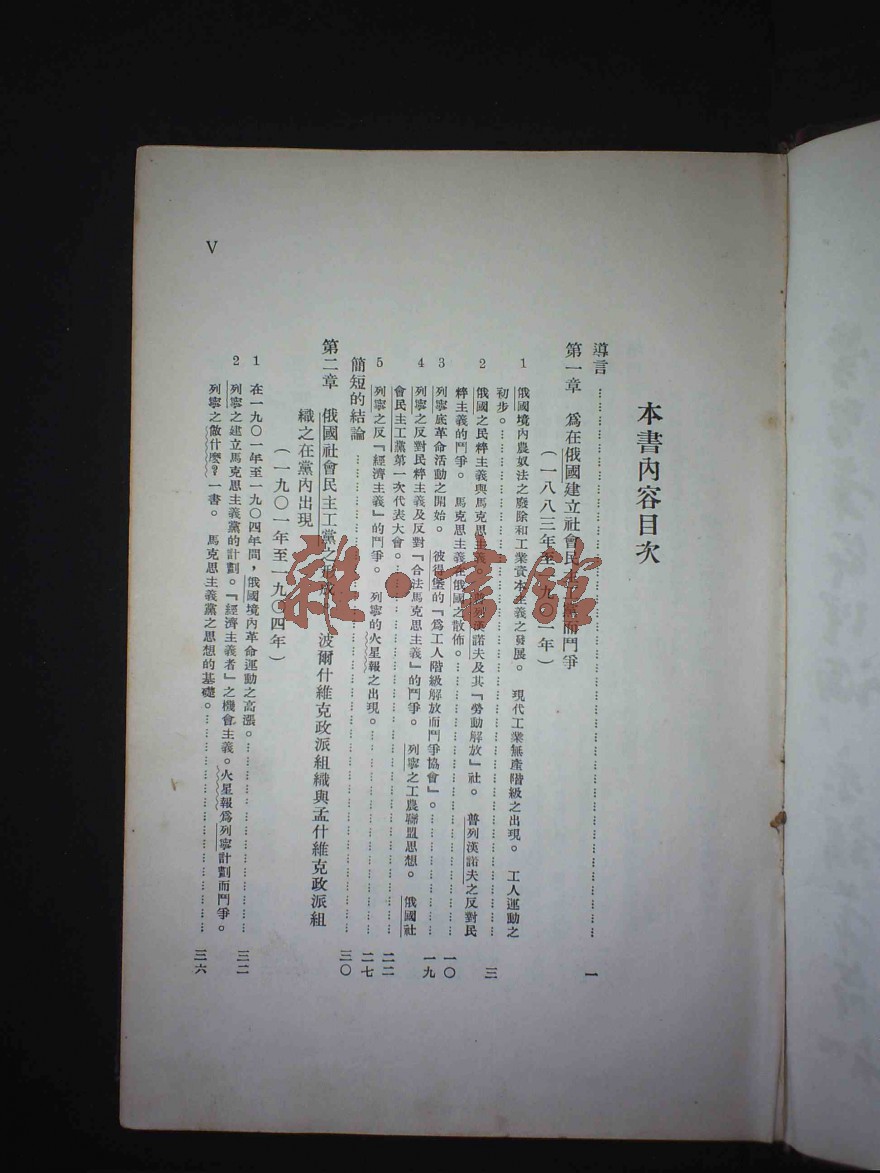 本書內容目次
導言……一
第一章　爲在俄國建立社會民主黨而鬥爭
（一八八三年至一九〇一年）
1　俄國境內農奴法之廢除和工業資本主義之發展。　現代工業無產階級之出現。　工人運動之
初步。……三
2　俄國之民粹主義與馬克思主義。普列漢諾夫及其『勞動解放』社。　普列漢諾夫之反對民
粹主義的鬥爭。　馬克思主義在俄國之散佈。……一〇
3　列寧底革命活動之開始。　彼得堡的『爲工人階級解放而鬥爭協會』。……一九
4　列寧之反對民粹主義及反對『合法馬克思主義』的鬥爭。　列寧之工農聯盟思想。　俄國社
會民主工黨第一次代表大會。……二二
5　列寧之反『經濟主義』的鬥爭。　列寧的火星報之出現。……二七
簡短的結論……三〇
第二章　俄國社會民主工黨之形成　波爾什維克政派組織與孟什維克政派組
織之在黨內出現
（一九〇一年至一九〇四年）
1　在一九〇一年至一九〇四年間，俄國境內革命運動之高漲。……三二
2　列寧之建立馬克思主義黨的計劃。『經濟主義者』之機會主義。火星報爲列寧計劃而鬥爭。
列寧之做什麽？一書。　馬克思主義黨之思想的基礎。……三六
V
雜·書館